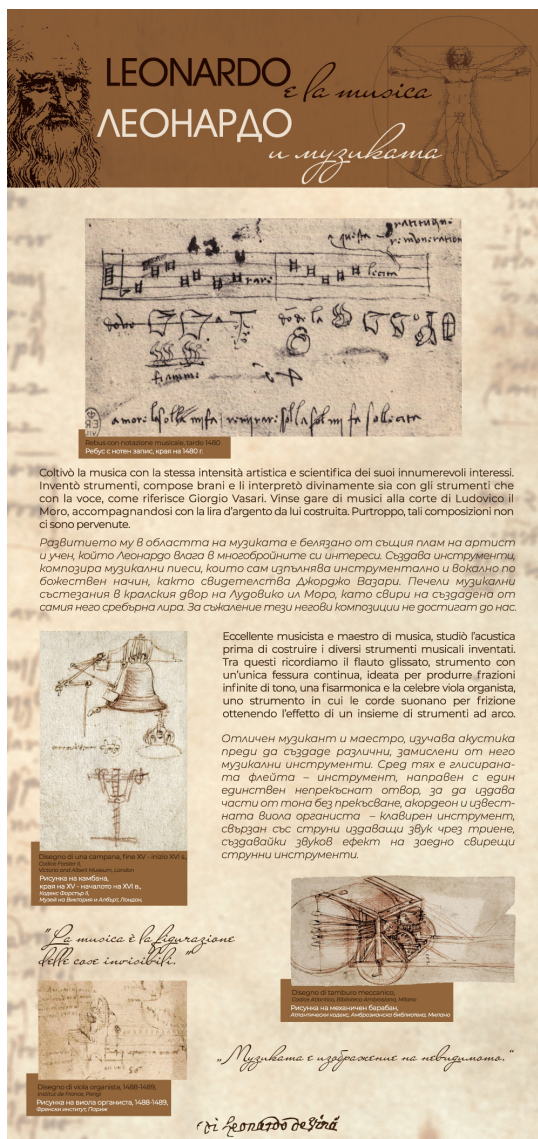 LEONARDO
e la musica
ЛЕОНАРДО
и музиката
gratitudi
Rebus con notazione musicale, tardo 1480
Ребус с нотен запис, края на 1480 г.
Coltivò la musica con la stessa intensità artistica e scientifica dei suoi innumerevoli interessi.
Inventò strumenti, compose brani e li interpretò divinamente sia con gli strumenti che
con la voce, come riferisce Giorgio Vasari. Vinse gare di musici alla corte di Ludovico il
Moro, accompagnandosi con la lira d’argento da lui costruita. Purtroppo, tali composizioni non
ci sono pervenute.
Развитието му в областта на музиката е белязано от същия плам на артист
и учен, който Леонардо влага в многобройните си интереси. Създава инструменти,
композира музикални пиеси, които сам изпълнява инструментално и вокално по
божествен начин, както свидетелства Джорджо Вазари. Печели музикални
състезания в кралския двор на Лудовико ил Моро, като свири на създадена от
самия него сребърна лира. За съжаление тези негови композиции не достигат до нас.
Eccellente musicista e maestro di musica, studiò l’acustica
prima di costruire i diversi strumenti musicali inventati.
Tra questi ricordiamo il flauto glissato, strumento con
un’unica fessura continua, ideata per produrre frazioni
infinite di tono, una fisarmonica e la celebre viola organista,
uno strumento in cui le corde suonano per frizione
ottenendo l’effetto di un insieme di strumenti ad arco.
Отличен музикант и маестро, изучава акустика
преди да създаде различни, замислени от него
музикални инструменти. Сред тях е глисирана-
та флейта – инструмент, направен с един
единствен непрекъснат отвор, за да издава
части от тона без прекъсване, акордеон и извест-
ната виола органиста – клавирен инструмент,
свързан със струни издаващи звук чрез триене,
създавайки звуков ефект на заедно свирещи
струнни инструменти.
Disegno di una campana, fine XV - inizio XVI s.,
Codice Forster II,
Victoria and Albert Museum, London
Рисунка на камбана,
края на XV - началото на XVI в.,
Кодекс Форстър II,
Музей на Виктория и Албърт, Лондон,
"La musica è la figurazione
delle cose invisibili."
Disegno di tamburo meccanico,
Codice Atlantico, Biblioteca Ambrosiana, Milano
Рисунка на механичен барабан,
Атлантически кодекс, Амброзианска библиотека, Милано
„Музиката е изображение на невидимото.“
Disegno di viola organista, 1488-1489,
Institut de France, Parigi
Рисунка на виола органиста, 1488-1489,
Френски институт, Париж